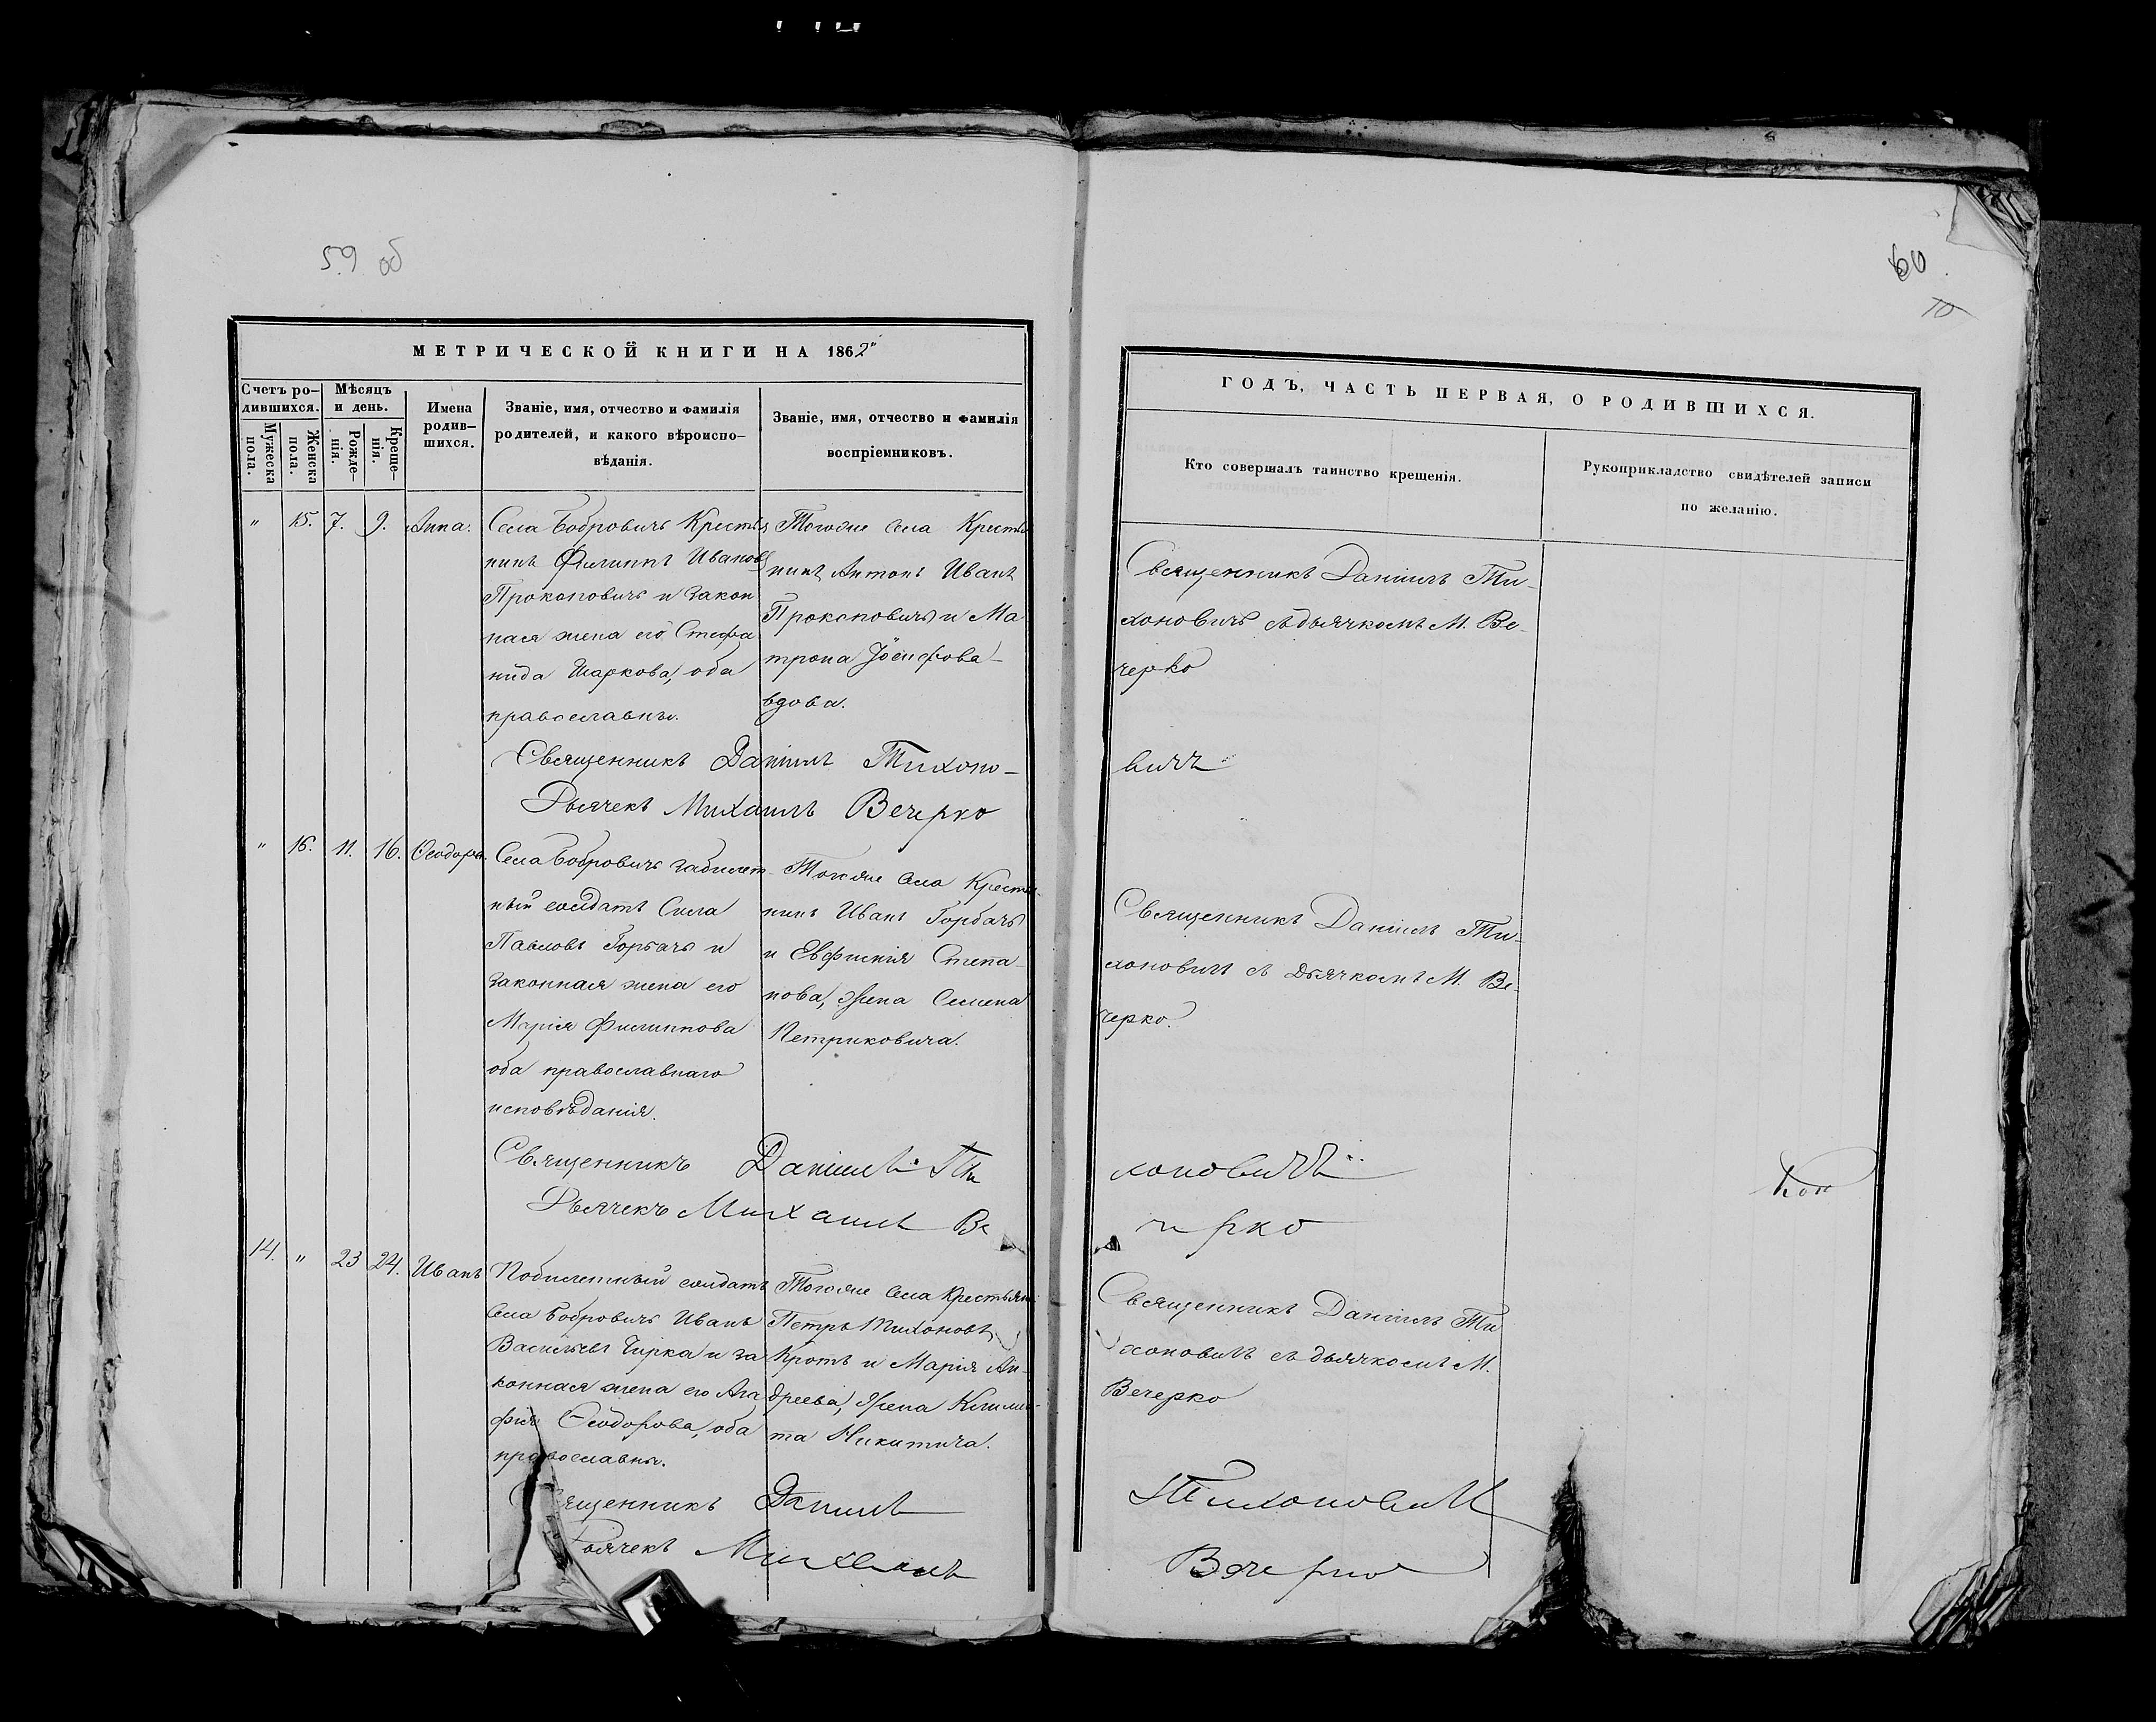 59 об
МЕТРИЧЕСКОЙ КНИГИ НА 1862
Счетъ ро-
дившихся.
Мѣсяцъ
и день.
Мужеска
пола.
Женска
пола.
Рожде-
нія.
Креще-
нія.
Имена
родив-
шихся.
Званіе, имя, отчество и фамилія
родителей, и какого вѣроиспо-
вѣданія.
Званіе, имя, отчество и фамилія
воспріемниковъ.
" 15. 7. 9. Анна.
Села Бобровичъ Крестья
нинъ Филиппъ Ивановъ
Прокоповичъ и закон
ная жена его Стефа
нида Маркова, оба
православны.
Тогоже села Крестья
нинъ Антонъ Иванъ
Прокоповичъ и Ма
трона Іосифова
вдова.
Священникъ Даніилъ Тихоно-
Дьячекъ Михаилъ Вечерко
" 16. 11. 16. Ѳеодора.
Села Бобровичъ забилет-
ный солдатъ Сила
Павловъ Горбачъ и
законная жена его
Марія Филиппова
оба православнаго
исповѣданія.
Тогоже села Крестья-
нинъ Иванъ Горбачъ
и Евфимія Степа-
нова, жена Семена
Петриковича.
Священникъ Даніилъ Ти
Дьячекъ Михаилъ Ве
14. " 23 24. Иванъ
Побилетный солдатъ
села Бобровичъ Иванъ
Васильевъ Чирка и за
конная жена его Ага
фія Ѳеодорова, оба
православны.
Тогоже села Крестьянинъ
Петръ Тихоновъ
Кротъ и Марія Ан-
дреева, жена Климен-
та Никитича.
ященникъ Даніилъ
Дьячекъ Михаилъ
60
ГОДЪ, ЧАСТЬ ПЕРВАЯ, О РОДИВШИХСЯ.
Кто совершалъ таинство крещенія.
Рукоприкладство свидѣтелей записи
по желанію.
Священникъ Даніилъ Ти-
хоновичъ съ дьячкомъ М. Ве-
черко
вичъ
Священникъ Даніилъ Ти-
хоновичъ съ Дьячкомъ М. Ве-
черко.
хоновичъ
черко
Священникъ Даніилъ Ти
хоновичъ съ дьячкомъ М.
Вечерко
Тихоновичъ
Вечерко